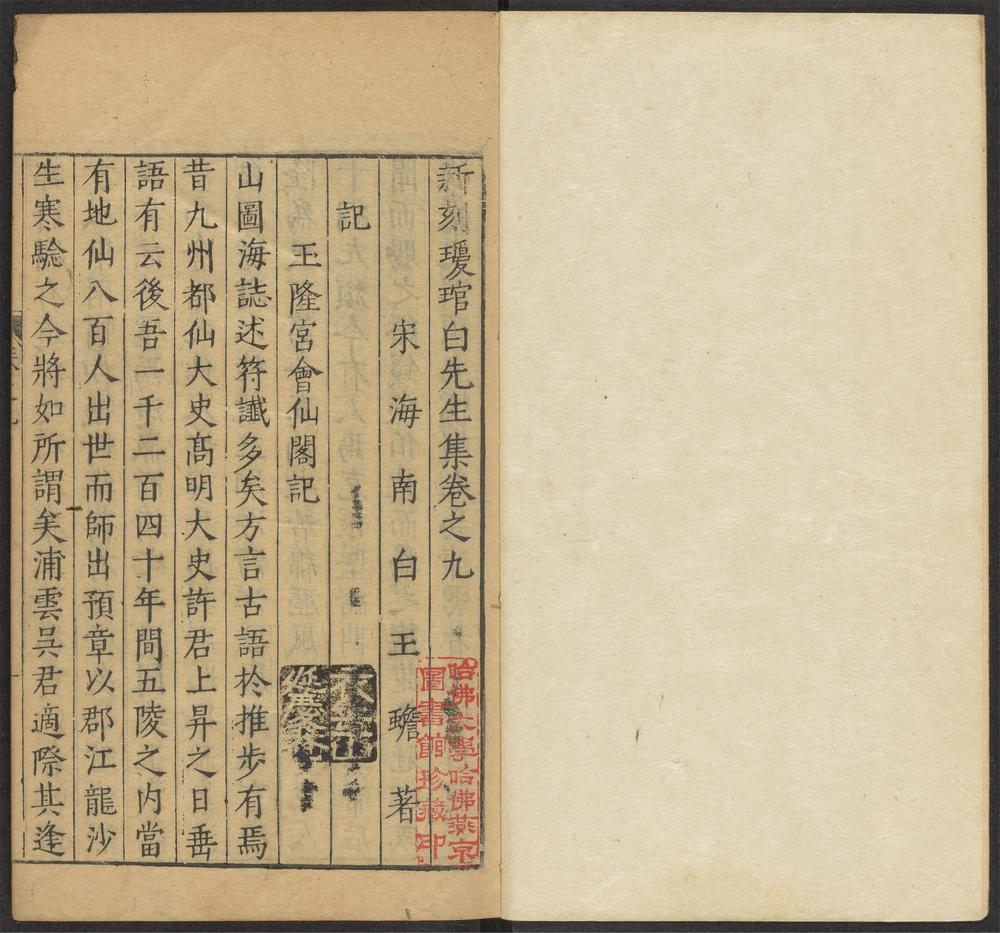 新刻瓊琯白先生集卷之九
宋海南白玉蟾著
記
玉隆宮會仙閣記
山圖海誌述符讖多矣方言古語於推步有焉
昔九州都仙大史高明大史許君上昇之日垂
語有云後吾一千二百四十年間五陵之内當
有地仙八百人出世而師出預章以郡江龍沙
生寒驗之今將如所謂矣浦雲吳君適際其逢
哈佛大學哈佛燕京
圖書館珍藏印